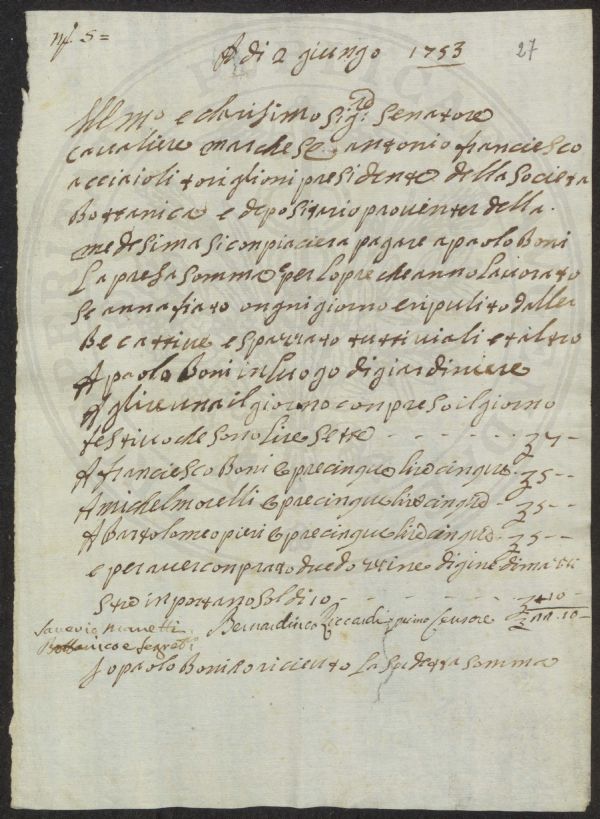 nf. 5=
A di 2 giungo 1753
27
Ill mo e clarisimo Sig:rd Senatore
Cavaliere marchese antonio franciesco
acciaioli toriglioni presidente della Società
Bottanica e depositario proventer della
medesima si conpiacierà pagare a paolo Boni
la presa somma per lopre che anno lavorato
se annafiato ongni giorno e ripulito dalle
Be cattive e sparzato tutti viali et altro
A paolo Boni in luogo di giardiniere
A lire una il giorno conpreso il giorno
festivo che sono lire sette - - - - - - £ 7 - -
A franciesco Boni opre cinque lire cinque - £ 5 - -
A michel morelli opre cinque lire cinque - £ 5 - -
A Bartolomeo pieri opre cinque lire cinque - £ 5 - -
e per aver conprato due dozzine di
stre inportano soldi 10 - - - - - - 10 - -
Bernardino Riccardi primo Censore
Saverio Manetti
Bottanico e Segret:
Io paolo Boni o riceuto la sudetta somma